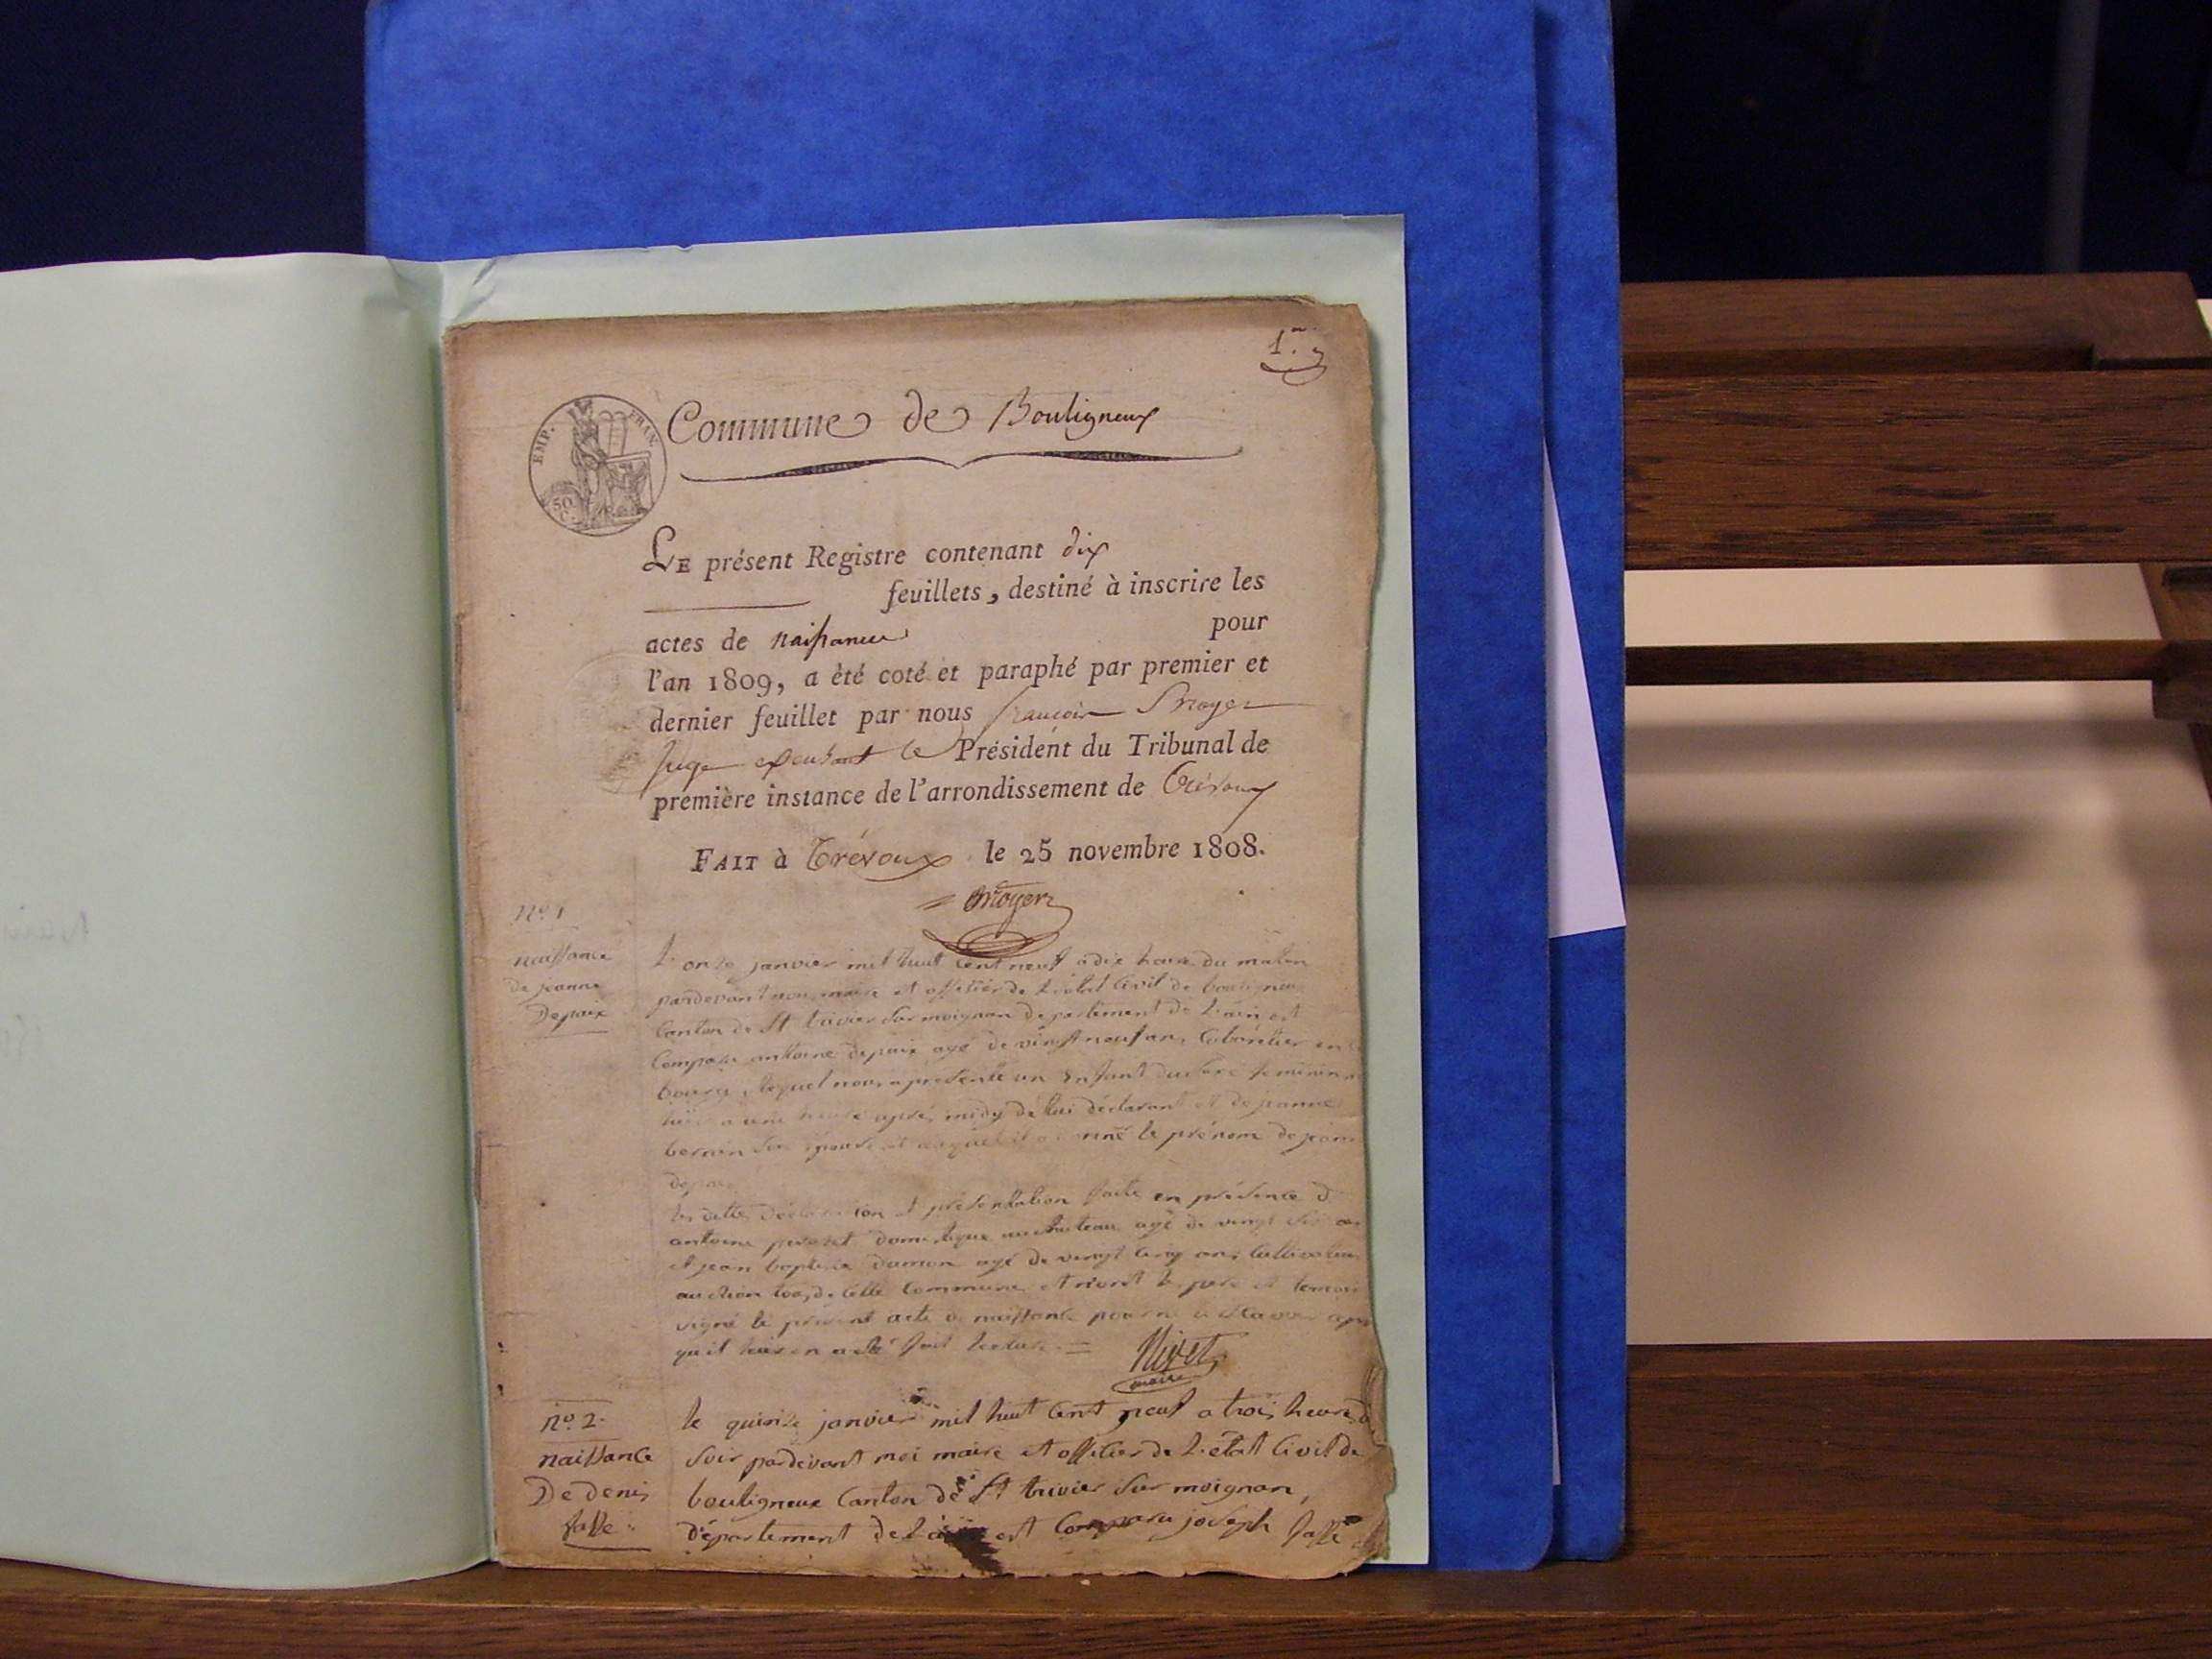 1.er
EMP. FRAN.
50 C.
Commune de Bouligneux
LE présent Registre contenant dix
feuillets, destiné à inscrire les
actes de naissance pour
l'an 1809, a été coté et paraphé par premier et
dernier feuillet par nous françois
Juge Président du Tribunal de
première instance de l'arrondissement de Trévoux
FAIT à Trévoux le 25 novembre 1808.
N.o 1
naissance
de jeanne
Depaix
L'onze janvier mil huit cent neuf a dix heure du matin
pardevant nous maire et officier de l'etat civil de bouligneux
Canton de St trivier sur moignan departement de l'ain est
Comparu antoine depaix agé de vingt neuf ans Cabaretier
bourg, lequel nous a presenté un Enfant du sexe feminin
a une heure après midy de lui déclarant et de jeanne
son épouse et auquel il a donné le prénom de
les dittes déclaration et présentation faite en présence
antoine domestique au chateau agé de vingt six
et jean baptiste damon agé de vingt cinq ans Cultivateur
de cette Commune, et n'ont le père et
signé le présent acte de naissance pour ne le savoir
qu'il leur en a été fait lecture =
Nivet
maire
N.o 2.
naissance
De denis
le quinze janvier mil huit cent neuf a trois heures
soir pardevant moi maire et officier de l'état Civil de
bouligneux Canton de St trivier sur moignan,
département de l'ain est Comparu joseph